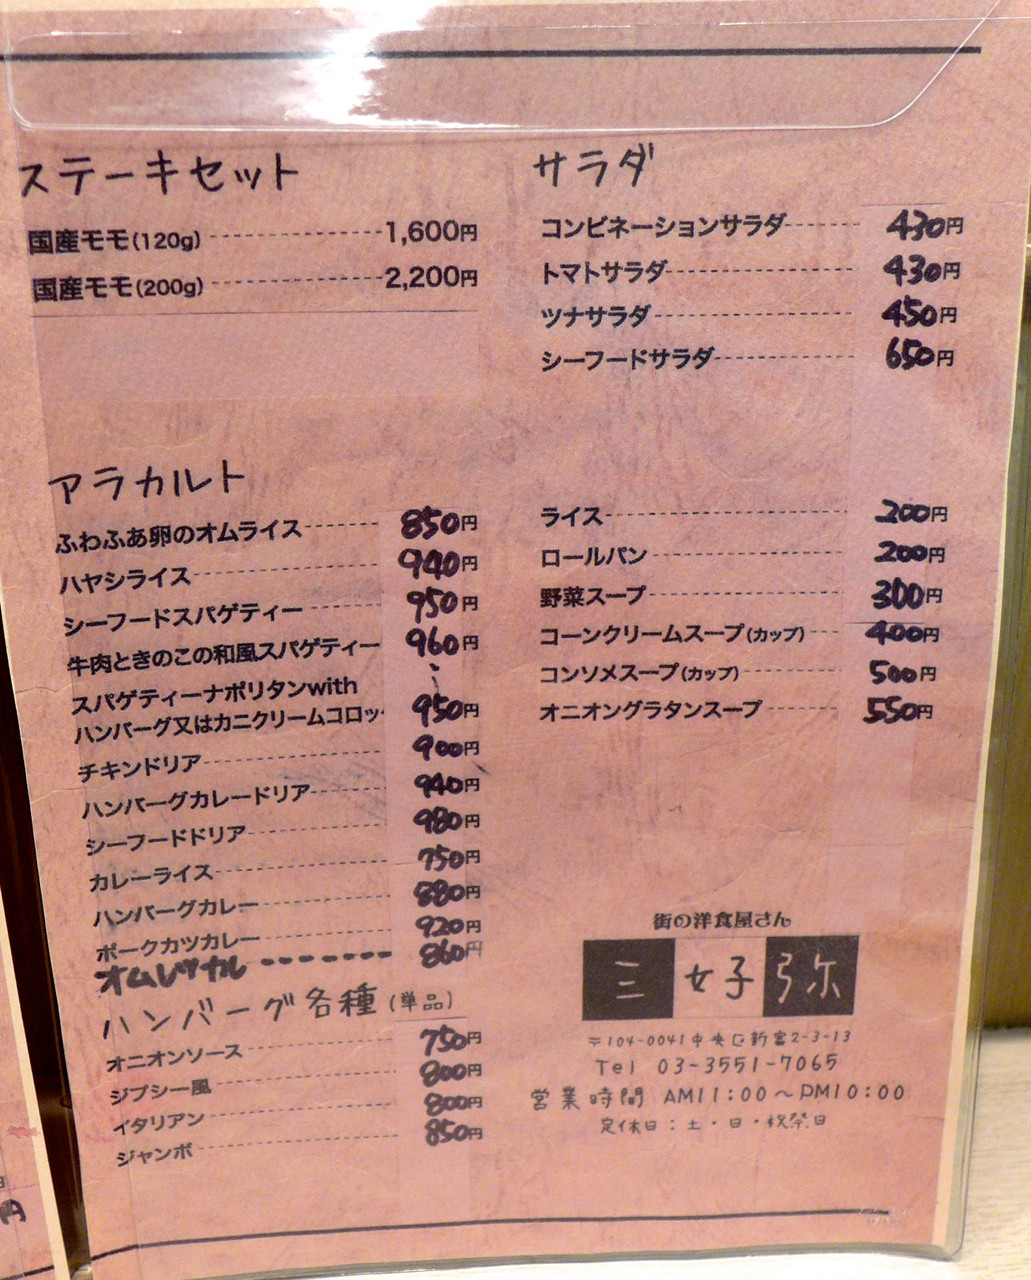 ステーキセット
国産モモ(120g) 1,600円
国産モモ(200g) 2,200円
サラダ
コンビネーションサラダ 430円
トマトサラダ 430円
ツナサラダ 450円
シーフードサラダ 650円
アラカルト
ふわふあ卵のオムライス 850円
ハヤシライス 940円
シーフードスパゲティー 950円
牛肉ときのこの和風スパゲティー 960円
スパゲティーナポリタンwith
ハンバーグ又はカニクリームコロッ 950円
チキンドリア 900円
ハンバーグカレードリア 940円
シーフードドリア 980円
カレーライス 750円
ハンバーグカレー 880円
ポークカツカレー 920円
オムレツカル 860円
ハンバーグ各種(単品)
オニオンソース 750円
ジプシー風 800円
イタリアン 800円
ジャンボ 850円
ライス 200円
ロールパン 200円
野菜スープ 300円
コーンクリームスープ(カップ) 400円
コンソメスープ(カップ) 500円
オニオングラタンスープ 550円
街の洋食屋さん
三女子弥
〒104-0041中央区新富2-3-13
Tel 03-3551-7065
営業時間 AM11:00～PM10:00
定休日:土・日・祝祭日
円